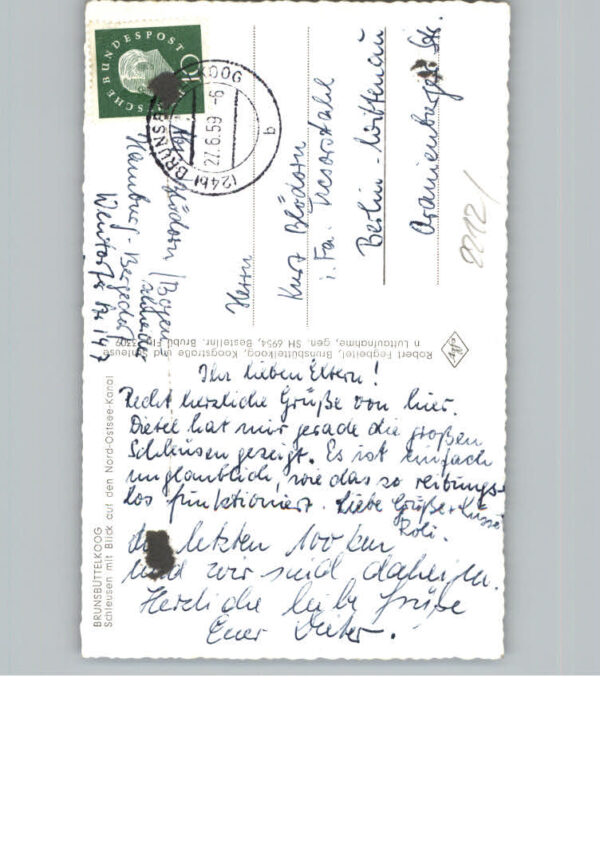 DEUTSCHE BUNDESPOST
(24b) BRUNSBÜTTELKOOG
27.6.59 -6
b
Blödorn / Boyen
Hamburg-Bergedorf
147
Herrn
Kurt Blödorn
i. Fa.
Berlin-Wittenau
Oranienburger Str.
2212/
Robert Fegbeitel, Brunsbüttelkoog, Koogstraße und Schleuse
n Luftaufnahme, gen. SH 6954, Bestellnr. Brubü
BRUNSBÜTTELKOOG
Schleusen mit Blick auf den Nord-Ostsee-Kanal
Ihr lieben Eltern!
Recht herzliche Grüße von hier.
Dieter hat mir gerade die großen
Schleusen gezeigt. Es ist einfach
unglaublich, wie das so reibungs-
los funktioniert. Liebe Grüße + Küsse
letzten 100 km
und wir sind daheim.
Herzliche liebe Grüße
Euer Dieter.